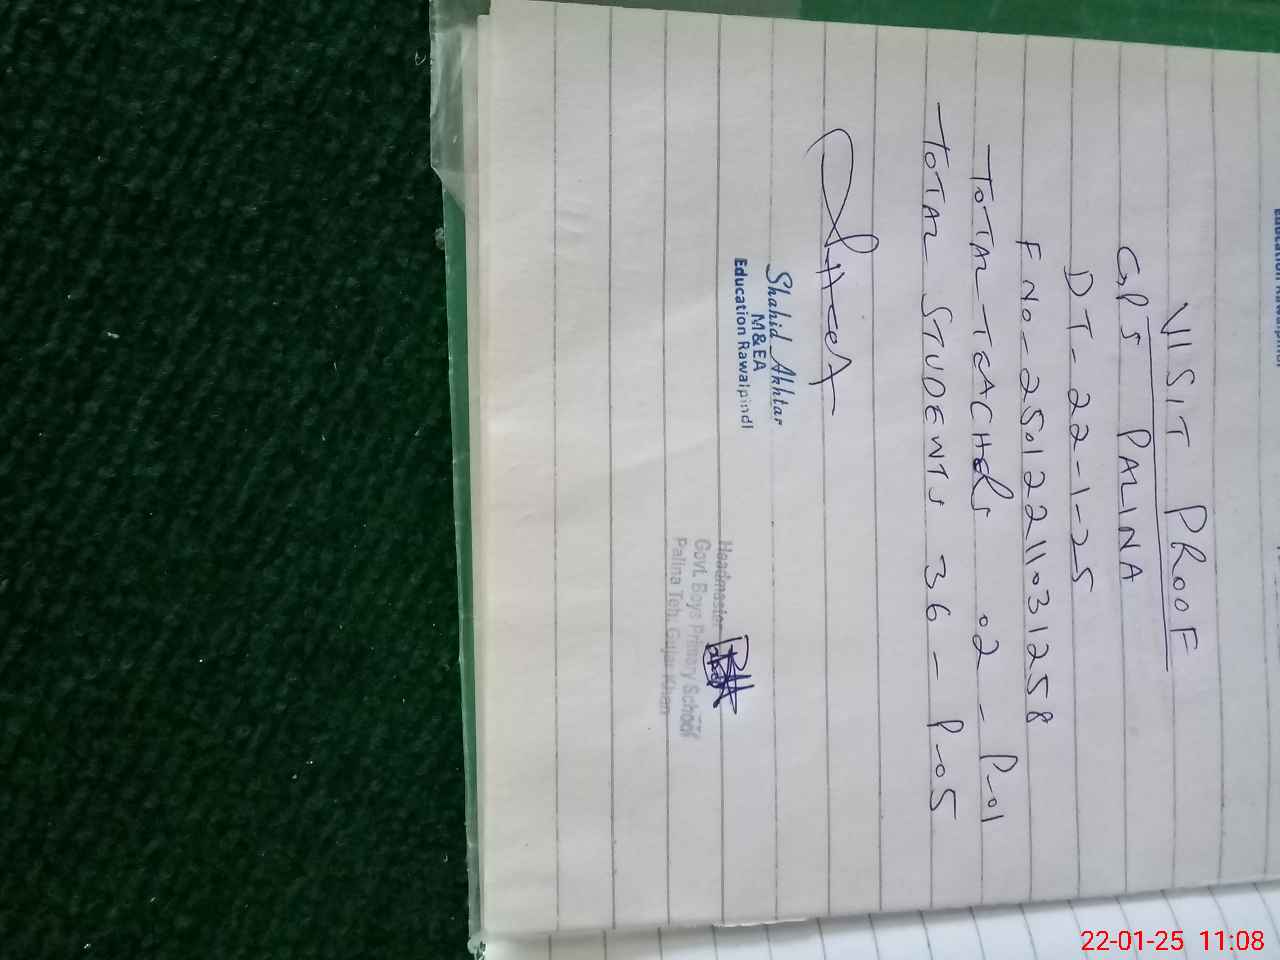 VISIT PROOF
GPS PALINA
DT-22-1-25
F No-25012211031258
TOTAL TEACHeRS 02 - P-01
TOTAL STUDENTS 36 - P-05
Shahid Akhtar
M&EA
Education Rawalpindi
Headmaster
Govt. Boys Primary School
Palina Teh: Gujar Khan
Education Rawalpindi
22-01-25 11:08